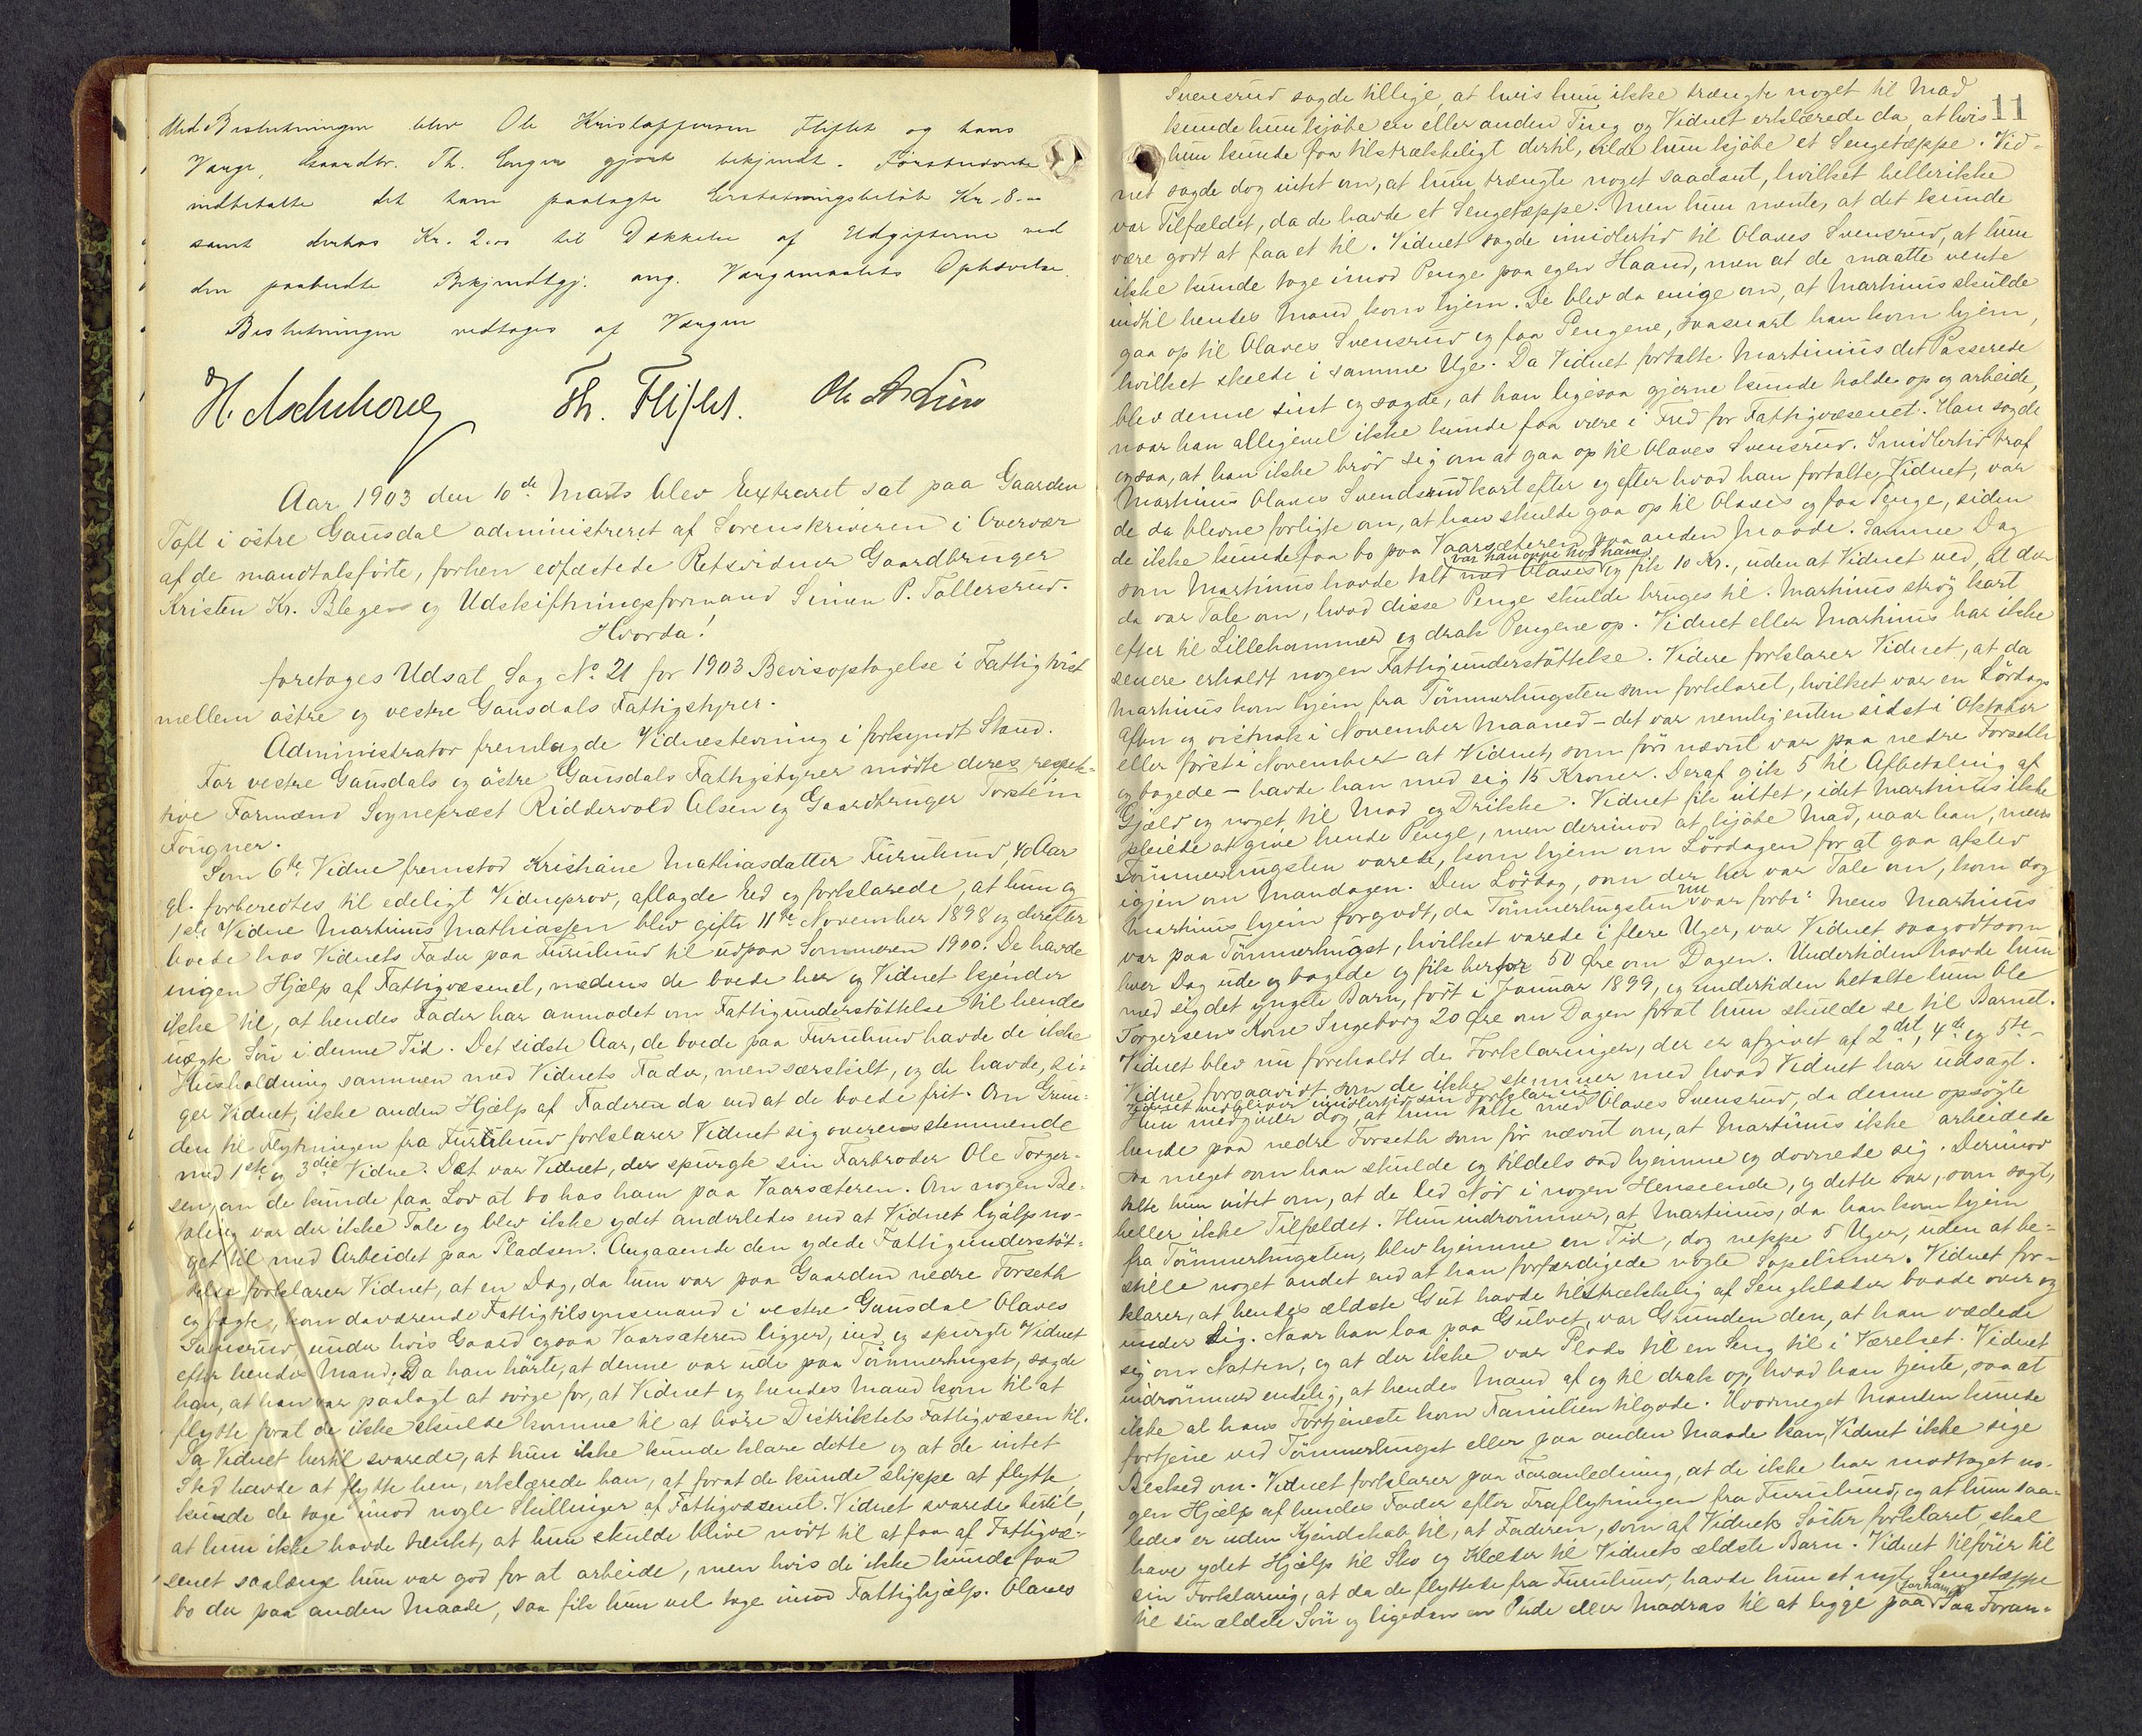 Med Beslutningen blev Ole Kristoffersen Fliflet og hans
Værge, Gaardbr. Th. Engen gjort bekjendt. Førstnævnte
indbetalte det ham paalagte Erstatningsbeløb Kr. 8.00
samt derhos Kr. 2.00 til Dækkelse af Udgifterne ved
den paabudte Bekjendtgj. ang. Værgemaalets Ophævelse.
Beslutningen vedtages af Værgen
H. Aschehoug Th. Fliflet. Ole
Aar 1903 den 10de Marts blev Extraret sat paa Gaarden
Toft i østre Gausdal administreret af Sorenskriveren i Overvær
af de mandtalsførte, forhen edfæstede Retsvidner Gaardbruger
Kristen Kr. Blegen og Udskiftningsformand Simen P. Tollersrud.
Hvorda!
foretoges Udsat Sag No 21 for 1903 Bevisoptagelse i Fattigtvist
mellem østre og vestre Gausdals Fattigstyrer.
Administrator fremlagde Vidnestevning i forkyndt Stand.
For vestre Gausdals og østre Gausdals Fattigstyrer mødte deres respek-
tive Formænd Sogneprest Riddervold Olsen og Gaardbruger Torstein
Fougner.
Som 6te Vidne fremstod Kristiane Mathiasdatter Furulund, 40 Aar
gl. forberedtes til edeligt Vidneprov, aflagde Ed og forklarede, at hun og
1ste Vidne Martinus Mathiassen blev gifte 11te November 1898 og derefter
boede hos Vidnets Fader paa Furulund til udpaa Sommeren 1900. De havde
ingen Hjælp af Fattigvæsenet, medens de boede her og Vidnet kjender
ikke til, at hendes Fader har anmodet om Fattigunderstøttelse til hendes
uægte Søn i denne Tid. Det sidste Aar, de boede paa Furulund havde de ikke
Husholdning sammen med Vidnets Fader, men særskilt, og de havde, si-
ger Vidnet, ikke anden Hjælp af Faderen da end at de boede frit. Om Grun-
den til Flytningen fra Furulund forklarer Vidnet sig overensstemmende
med 1ste og 3die Vidne. Det var Vidnet, der spurgte sin Farbroder Ole Torger-
sen, om de kunde faa Lov at bo hos ham paa Vaarsæteren. Om nogen Be-
taling var der ikke Tale og blev ikke ydet anderledes end at Vidnet hjalp no-
get til med Arbeidet paa Pladsen. Angaaende den ydede Fattigunderstøt-
telse forklarer Vidnet, at en Dag, da hun var paa Gaarden nedre Forseth
og bagte, kom daværende Fattigtilsynsmand i vestre Gausdal Olaves
Svensrud, under hvis Gaard ogsaa Vaarsæteren ligger, ind og spurgte Vidnet
efter hendes Mand. Da han hørte, at denne var ude paa Tømmerhugst, sagde
han, at han var paalagt at sørge for, at Vidnet og hendes Mand kom til at
flytte forat de ikke skulde komme til at høre Distriktets Fattigvæsen til.
Da Vidnet hertil svarede, at hun ikke kunde klare dette og at de intet
Sted havde at flytte hen, erklærede han, at forat de kunde slippe at flytte,
kunde de tage imod nogle Skillinger af Fattigvæsenet. Vidnet svarede hertil,
at hun ikke havde tænkt, at hun skulde blive nødt til at faa af Fattigvæ-
senet saalænge hun var god for at arbeide, men hvis de ikke kunde faa
bo der paa anden Maade, saa fik hun vel tage imod Fattighjælp. Olaves
11
Svensrud sagde tillige, at hvis hun ikke trængte noget til Mad
kunde hun kjøbe en eller anden Ting og Vidnet erklærede da, at hvis
hun kunde faa tilstrækkeligt dertil, vilde hun kjøbe et Sengetæppe. Vid-
net sagde dog intet om, at hun trængte noget saadant, hvilket hellerikke
var Tilfældet, da de havde et Sengetæppe. Men hun mente, at det kunde
være godt at faa et til. Vidnet sagde imidlertid til Olaves Svensrud, at hun
ikke kunde tage imod Penge paa egen Haand, men at de maatte vente
indtil hendes Mand kom hjem. De blev da enige om, at Martinus skulde
gaa op til Olaves Svensrud og faa Pengene, saasnart han kom hjem,
hvilket skede i samme Uge. Da Vidnet fortalte Martinus det Passerede
blev denne sint og sagde, at han ligesaa gjerne kunde holde op og arbeide,
naar han alligevel ikke kunde faa være i Fred for Fattigvæsenet. Han sagde
ogsaa, at han ikke brød sig om at gaa op til Olaves Svensrud. Imidlertid traf
Martinus Olaves Svendsrud kort efter og efter hvad han fortalte Vidnet, var
de da blevne forligte om, at han skulde gaa op til Olaves og faa Penge, siden
de ikke kunde faa bo paa Vaarsæteren paa anden Maade. Samme Dag
var han oppe hos ham
som Martinus havde talt med Olaves og fik 10 Kr., uden at Vidnet ved, at der
da var Tale om, hvad disse Penge skulde bruges til. Martinus strøg kort
efter til Lillehammer og drak Pengene op. Vidnet eller Martinus har ikke
senere erholdt nogen Fattigunderstøttelse. Videre forklarer Vidnet, at da
Martinus kom hjem fra Tømmerhugsten som forklaret, hvilket var en Lørdags
Aften og vistnok i November Maaned - det var nemlig enten sidst i Oktober
eller først i November at Vidnet, som før nævnt var paa nedre Forseth
og bagede - havde han med sig 15 Kroner. Deraf gik 5 til Afbetaling af
Gjæld og noget til Mad og Drikke. Vidnet fik intet, idet Martinus ikke
pleiede at give hende Penge, men derimod at kjøbe Mad, naar han, mens
Tømmerhugsten varede, kom hjem om Lørdagen for at gaa afsted
igjen om Mandagen. Den Lørdag, som der her var Tale om, kom dog
nu
Martinus hjem forgodt, da Tømmerhugsten var forbi. Mens Martinus
var paa Tømmerhugst, hvilket varede i flere Uger, var Vidnet saagodtsom
hver Dag ude og bagede og fik herfor 50 Øre om Dagen. Undertiden havde hun
med sig det yngste Barn, født i Januar 1899, og undertiden betalte hun Ole
Torgersens Kone Ingeborg 20 Øre om Dagen forat hun skulde se til Barnet.
Vidnet blev nu foreholdt de Forklaringer, der er afgivet af 2det, 4de og 5te
Vidne, forsaavidt som de ikke stemmer med hvad Vidnet har udsagt.
Vidnet vedbliver imidlertid sin Forklaring.
Hun medgiver dog, at hun talte med Olaves Svensrud, da denne opsøgte
hende paa nedre Forseth som før nævnt om, at Martinus ikke arbeidede
saa meget som han skulde og tildels sad hjemme og dovnede sig. Derimod
talte hun intet om, at de led Nød i nogen Henseende, og dette var, som sagt,
heller ikke Tilfældet. Hun indrømmer, at Martinus, da han kom hjem
fra Tømmerhugsten, blev hjemme en Tid, dog neppe 5 Uger, uden at be-
stille noget andet end at han forfærdigede nogle Sopelimer. Vidnet for-
klarer, at hendes ældste Gut havde tilstrækkelig af Sengklæder baade over og
under sig. Naar han laa paa Gulvet, var Grunden den, at han vædede
sig om Natten, og at der ikke var Plads til en Seng til i Værelset. Vidnet
indrømmer endelig, at hendes Mand af og til drak op, hvad han tjente, saa at
ikke al hans Fortjeneste kom Familien tilgode. Hvormeget Manden kunde
fortjene ved Tømmerhugst eller paa anden Maade kan Vidnet ikke sige
Besked om. Vidnet forklarer paa Foranledning, at de ikke har modtaget no-
gen Hjælp af hendes Fader efter Fraflytningen fra Furulund, og at hun saa-
ledes er uden Kjendskab til, at Faderen, som af Vidnets Søster forklaret, skal
have ydet Hjælp til Sko og Klæder til Vidnets ældste Barn. Vidnet tilføier til
sin Forklaring, at da de flyttede fra Furulund, havde hun et nyt Sengetæppe
for ham
til sin ældste Søn og ligedan en Pude eller Madras til at ligge paa. Paa Foran-